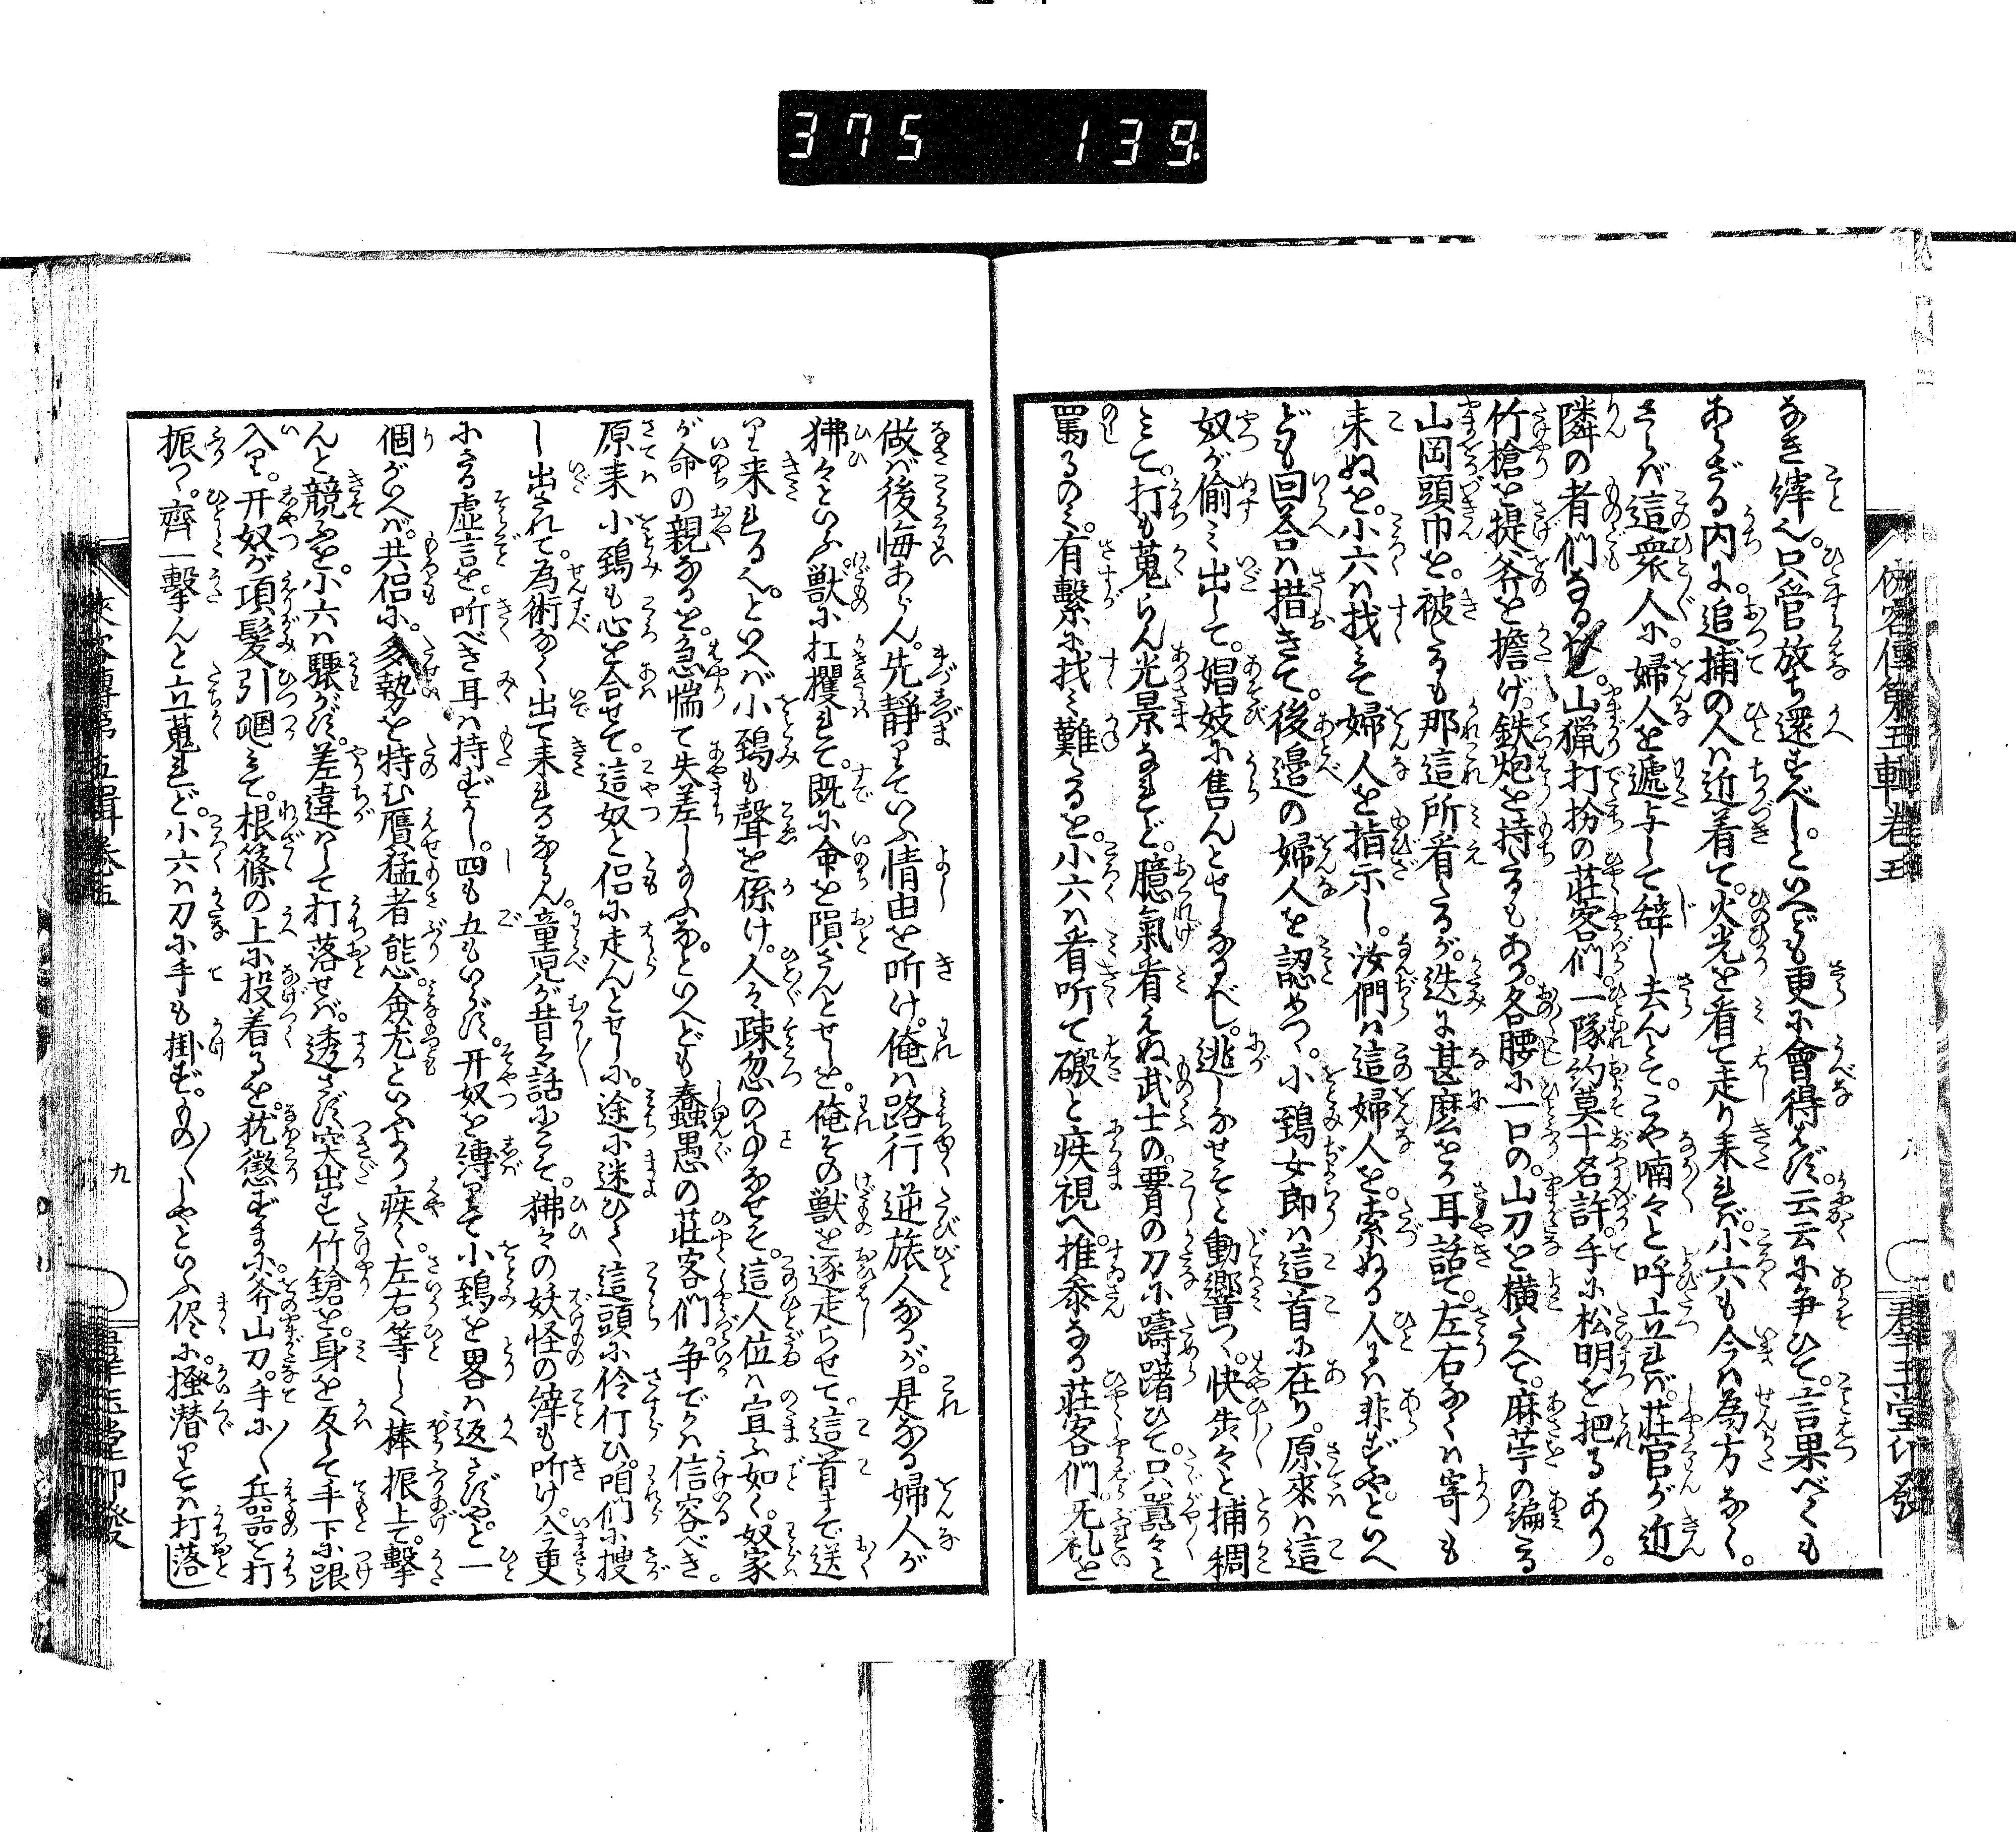 375 139
俠客傳第五輯卷五
なき縡ん。只管放ち還すべし。といへども更に會得せず。云云に争ひて。言果べくも
あらざる内に。追捕の人は近着て。火光を看て走り来れば。小六も今は為方なく。
さらば這衆人に。婦人を遞与して辭し去んとて。こや喃々と呼立れば。莊官が近
隣の者們なるべし。山猟打扮の莊客們。一隊約莫十名許。手に松明を把るあり。
竹槍を提斧を擔げ。鉄炮を持るもあり。各腰に一口の。山刀を横たへて。麻苧の編たる
山岡頭巾を。被たるも那這所看たるが。迭に甚麽をか耳話て。左右なくは寄も
来ぬを。小六は找みて婦人を指示し。汝們は這婦人を。索ぬる人には非ずや。といへ
ども回荅は措きて。後邉の婦人を認めつ。小鵶女郎は這首に在り。原來は這
奴が偷み出して。娼妓に售んとせしなるべし。逃しなせそと動響つ。快告々と捕稠
みて。打も蒐らん光景なれど。臆氣看えぬ武士の。腰の刀に躊躇ひて。只囂々と
罵るのみ。有繋に找み難たるを。小六は看听て礑と疾視へ。推參なる莊客們。无礼を
做ば後悔あらん。先靜りていふ情由を听け。俺は路行逆旅人なるが。是なる婦人が
狒々といふ獣に扛攫れて。既に命を隕さんとせしを。俺その獣を逐走らせて。這首まで送
り来れるん。といへば小鵶も聲を係け。人々疎忽の事なせそ。這人位は宣ふ如く。奴家
が命の親なるを。急惴て失差し給ふな。といへども蠢愚の莊客們。争でかは信容べき。
原来小鵶も心を合せて。這奴と侶に走んとせしに。途に迷ひて這頭に伶仃ひ。咱們に捜
し出されて。為術なく出て来れるならん。童児が昔々話にこそ。狒々の妖怪の縡も听け。今更
にさる虚言を。听べき耳は持ずかし。四も五もいはず。开奴を縛りて小鵶を畧は返さずや。と一
個がいへば。共侶に。多勢を特む贋猛者態。僉尤といふより疾く。左右等しく棒振上て。撃
んと競ふを。小六は騒がず。差違はして打落せば。透さず突出す竹鎗を。身を反して手下に跟
入り。开奴が項髪引𢌞みて。根篠の上に投着るを。犹懲ずまに。斧山刀。手に〳〵兵器を打
振つ。齊一撃んと立蒐れど。小六は刀に手も掛ず。もの〳〵しやといふ侭に。掻潜りては打落し
九